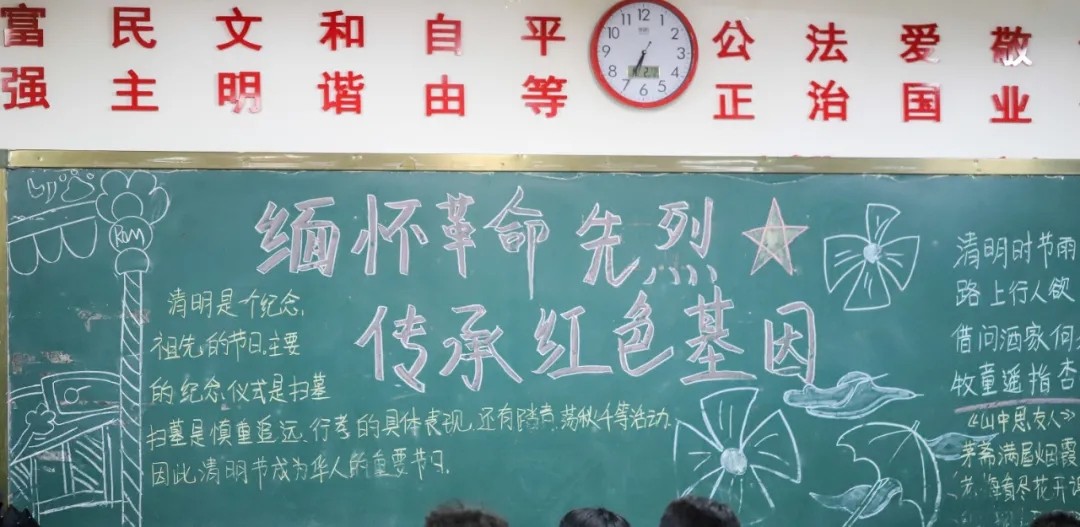 富 民 文 和 自 平 公 法 爱 敬
强 主 明 谐 由 等 正 治 国 业
12
1
2
3
4
5
6
7
8
9
10
11
缅怀革命先烈
传承红色基因
清明是个纪念
祖先的节日.主要
的纪念仪式是扫墓
扫墓是慎重追远、行孝的具体表现,还有踏青、荡秋千等活动,
因此,清明节成为华人的重要节日.
清明时节雨
路上行人欲
借问酒家何
牧童遥指杏
《山中思友人》
茅斋满屋烟霞